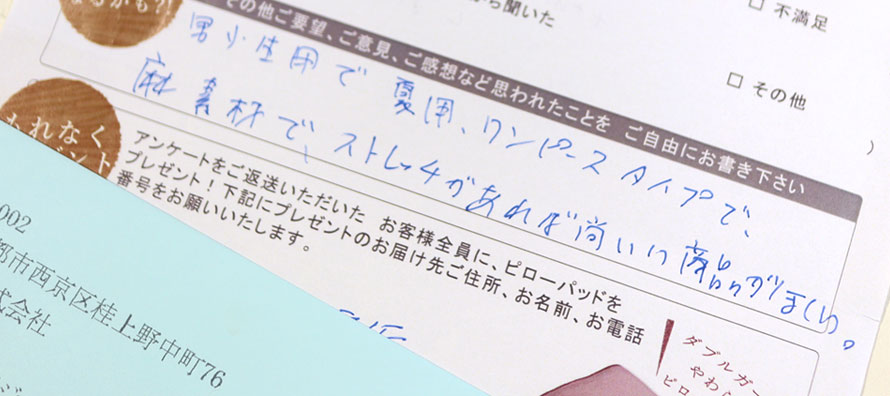 なるかも?!
から聞いた
不満足
その他
その他ご要望、ご意見、ご感想など思われたことを ご自由にお書き下さい
男小生用で夏用、ワンピースタイプで、
麻素材で、ストレッチがあれば尚いい商品がほしい。
)
もれなく
アンケートをご返送いただいた お客様全員に、ピローパッドを
プレゼント!下記にプレゼントのお届け先ご住所、お名前、お電話
番号をお願いいたします。
002
都市西京区桂上野中町76
式会社
ダブルガー
やわら
ピロ